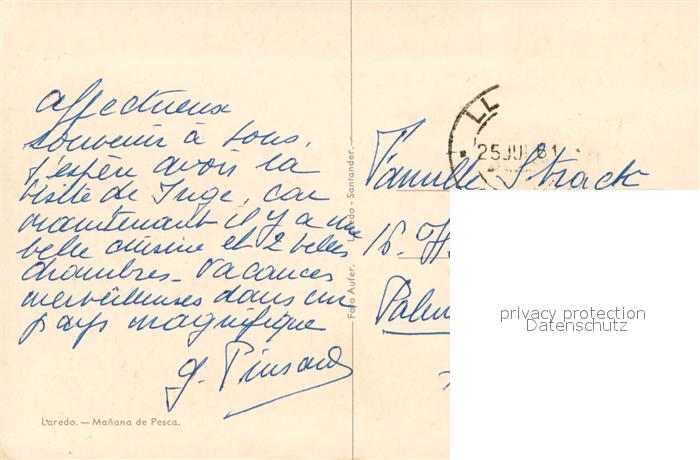 affectueux
souvenir à tous,
j'espère avoir la
visite de Inge, car
maintenant il y a une
belle cuisine et 2 belles
chambres - Vacances
merveilleuses dans un
pays magnifique
Laredo. — Mañana de Pesca.
Foto Aufer. Laredo - Santander.
LL
25 JUL 61
Famille Strack
15. H
privacy protection
Datenschutz